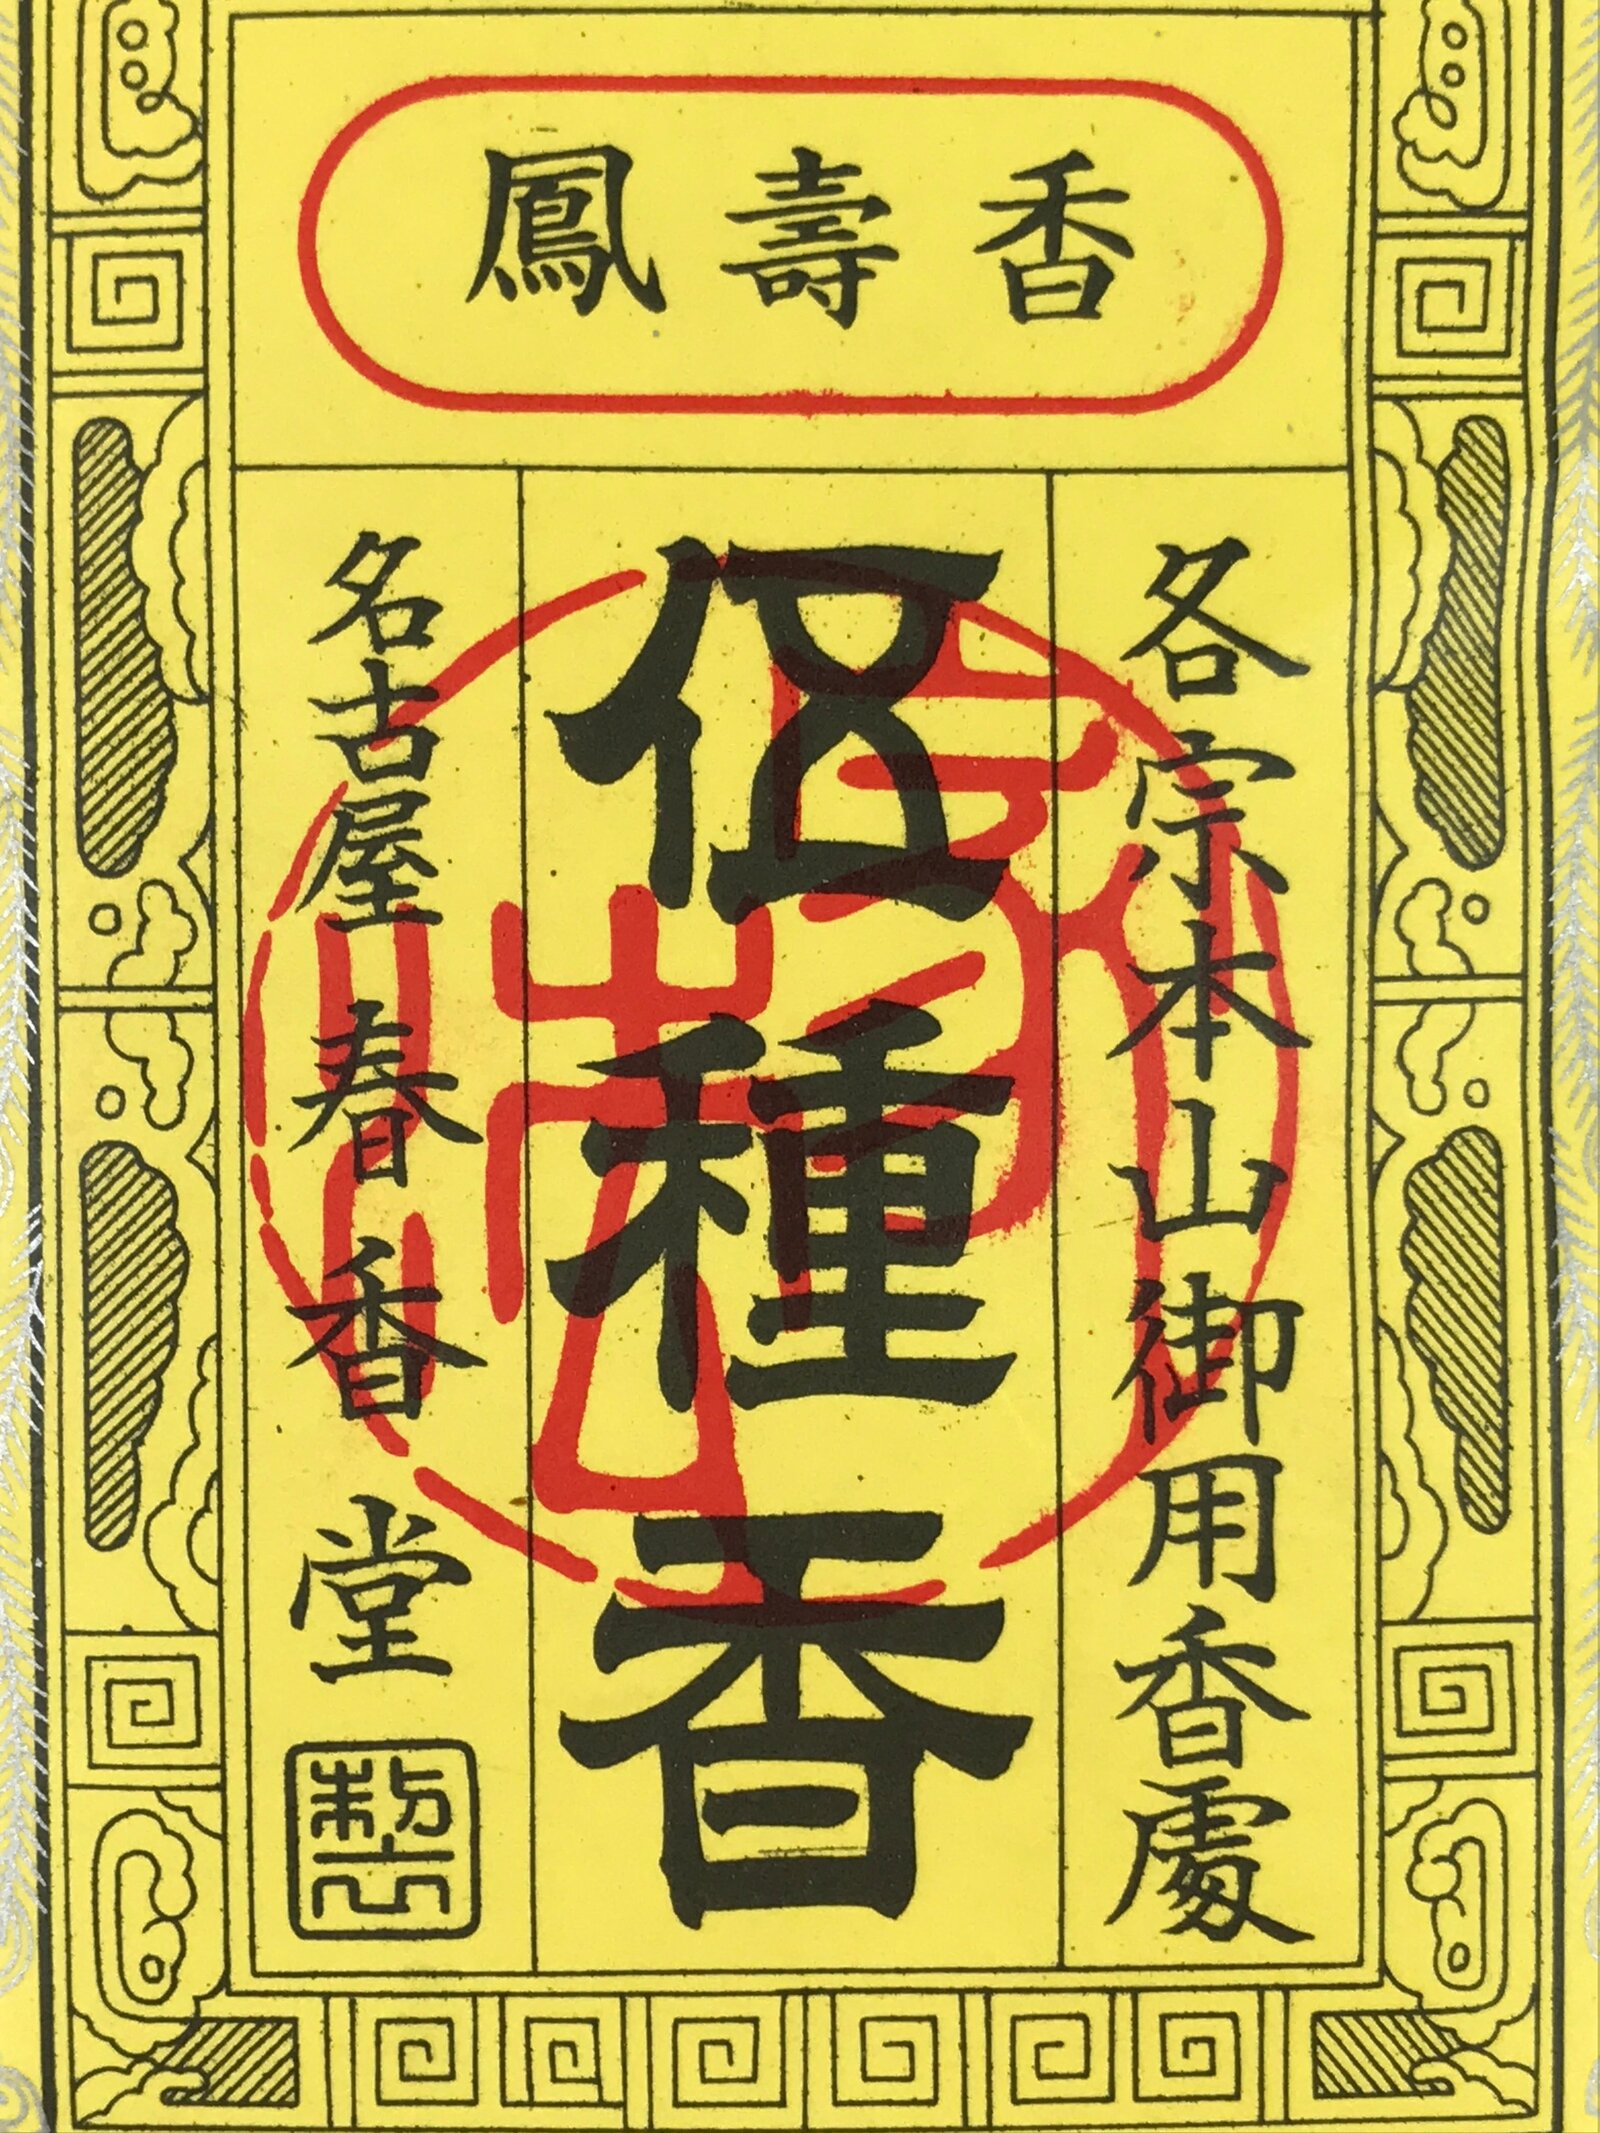 鳳壽香
各宗本山御用香處
伍種香
名古屋 春香堂
製